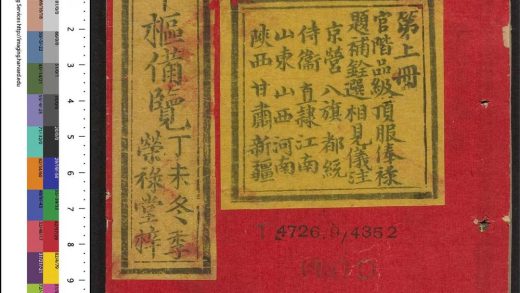 第上冊
官階品級頂服俸祿
題補銓選相見儀注
京營 八旗 都統
侍衛 直隸 江南
山東 山西 河南
陝西 甘肅 新疆
樞備覽
丁未冬季
榮祿堂梓
T 4726.9/4352
2
3
4
5
6
7
8
9